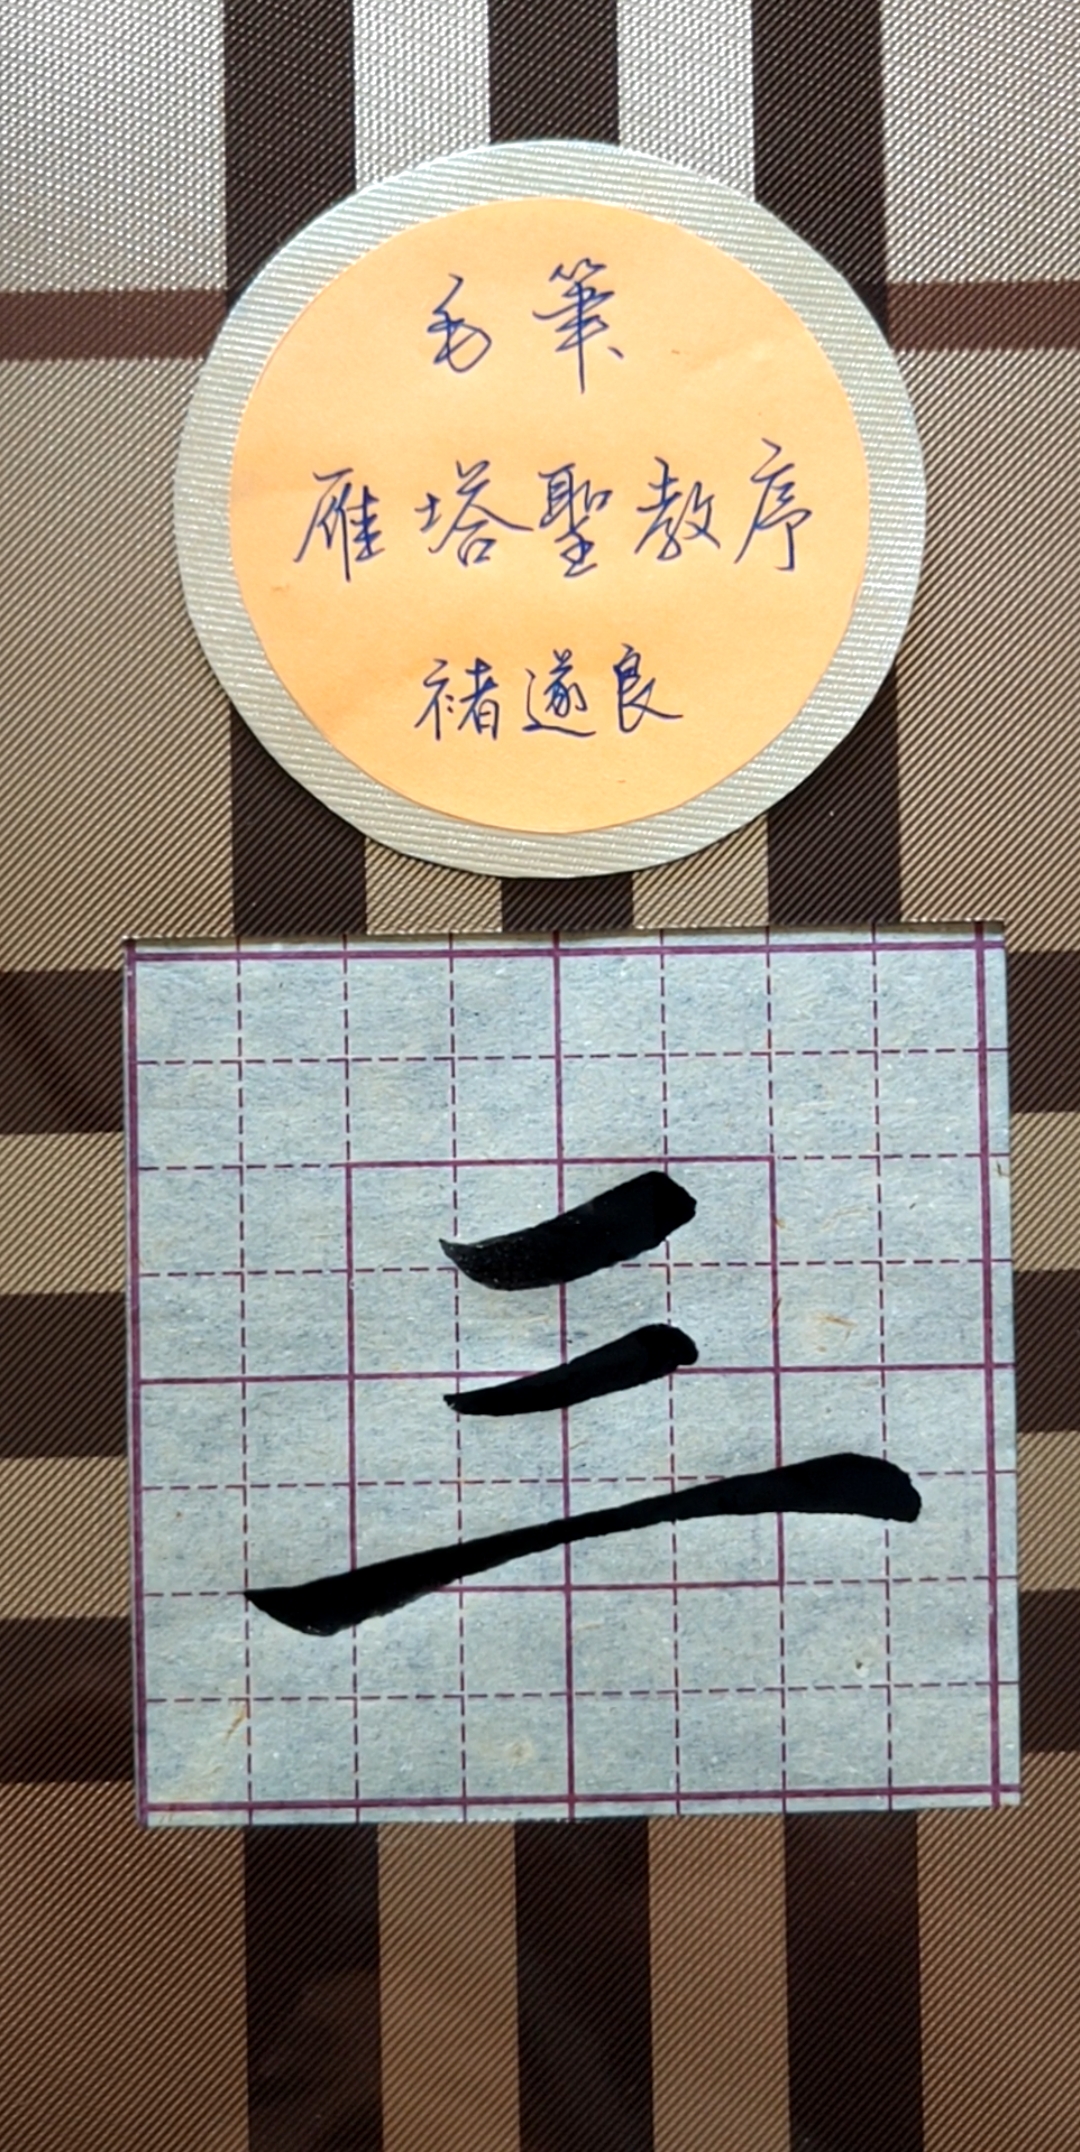 毛筆
雁塔聖教序
褚遂良
三